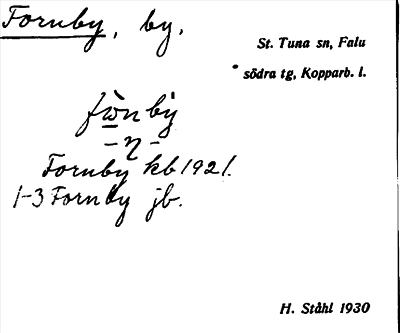 Fornby, by.
St. Tuna sn, Falu
södra tg, Kopparb. l.
fw̄̀nby̆
-η-
Fornby kb 1921.
1-3 Fornby jb.
H. Ståhl 1930